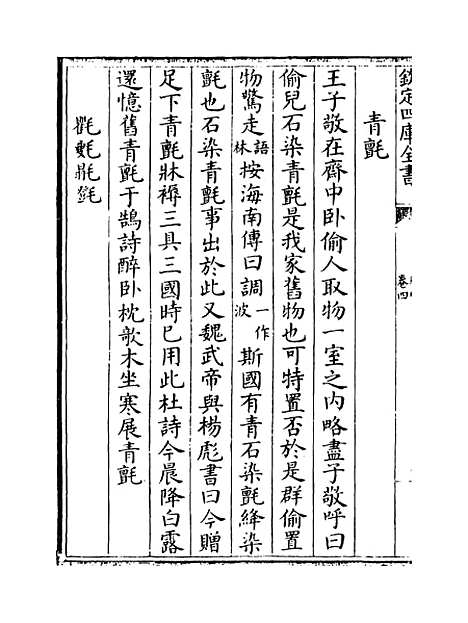 欽定四庫全書
卷四
青氈
王子敬在齊中卧偷人取物一室之内略盡子敬呼曰
偷兒石染青氈是我家舊物也可特置否於是群偷置
物驚走語林按海南傳曰調一作波斯國有青石染氈絳染
氈也石染青氈事出於此又魏武帝與楊彪書曰今贈
足下青氈牀褥三具三國時已用此杜詩今晨降白露
還憶舊青氈于鵠詩醉卧枕歌木坐寒展青氈